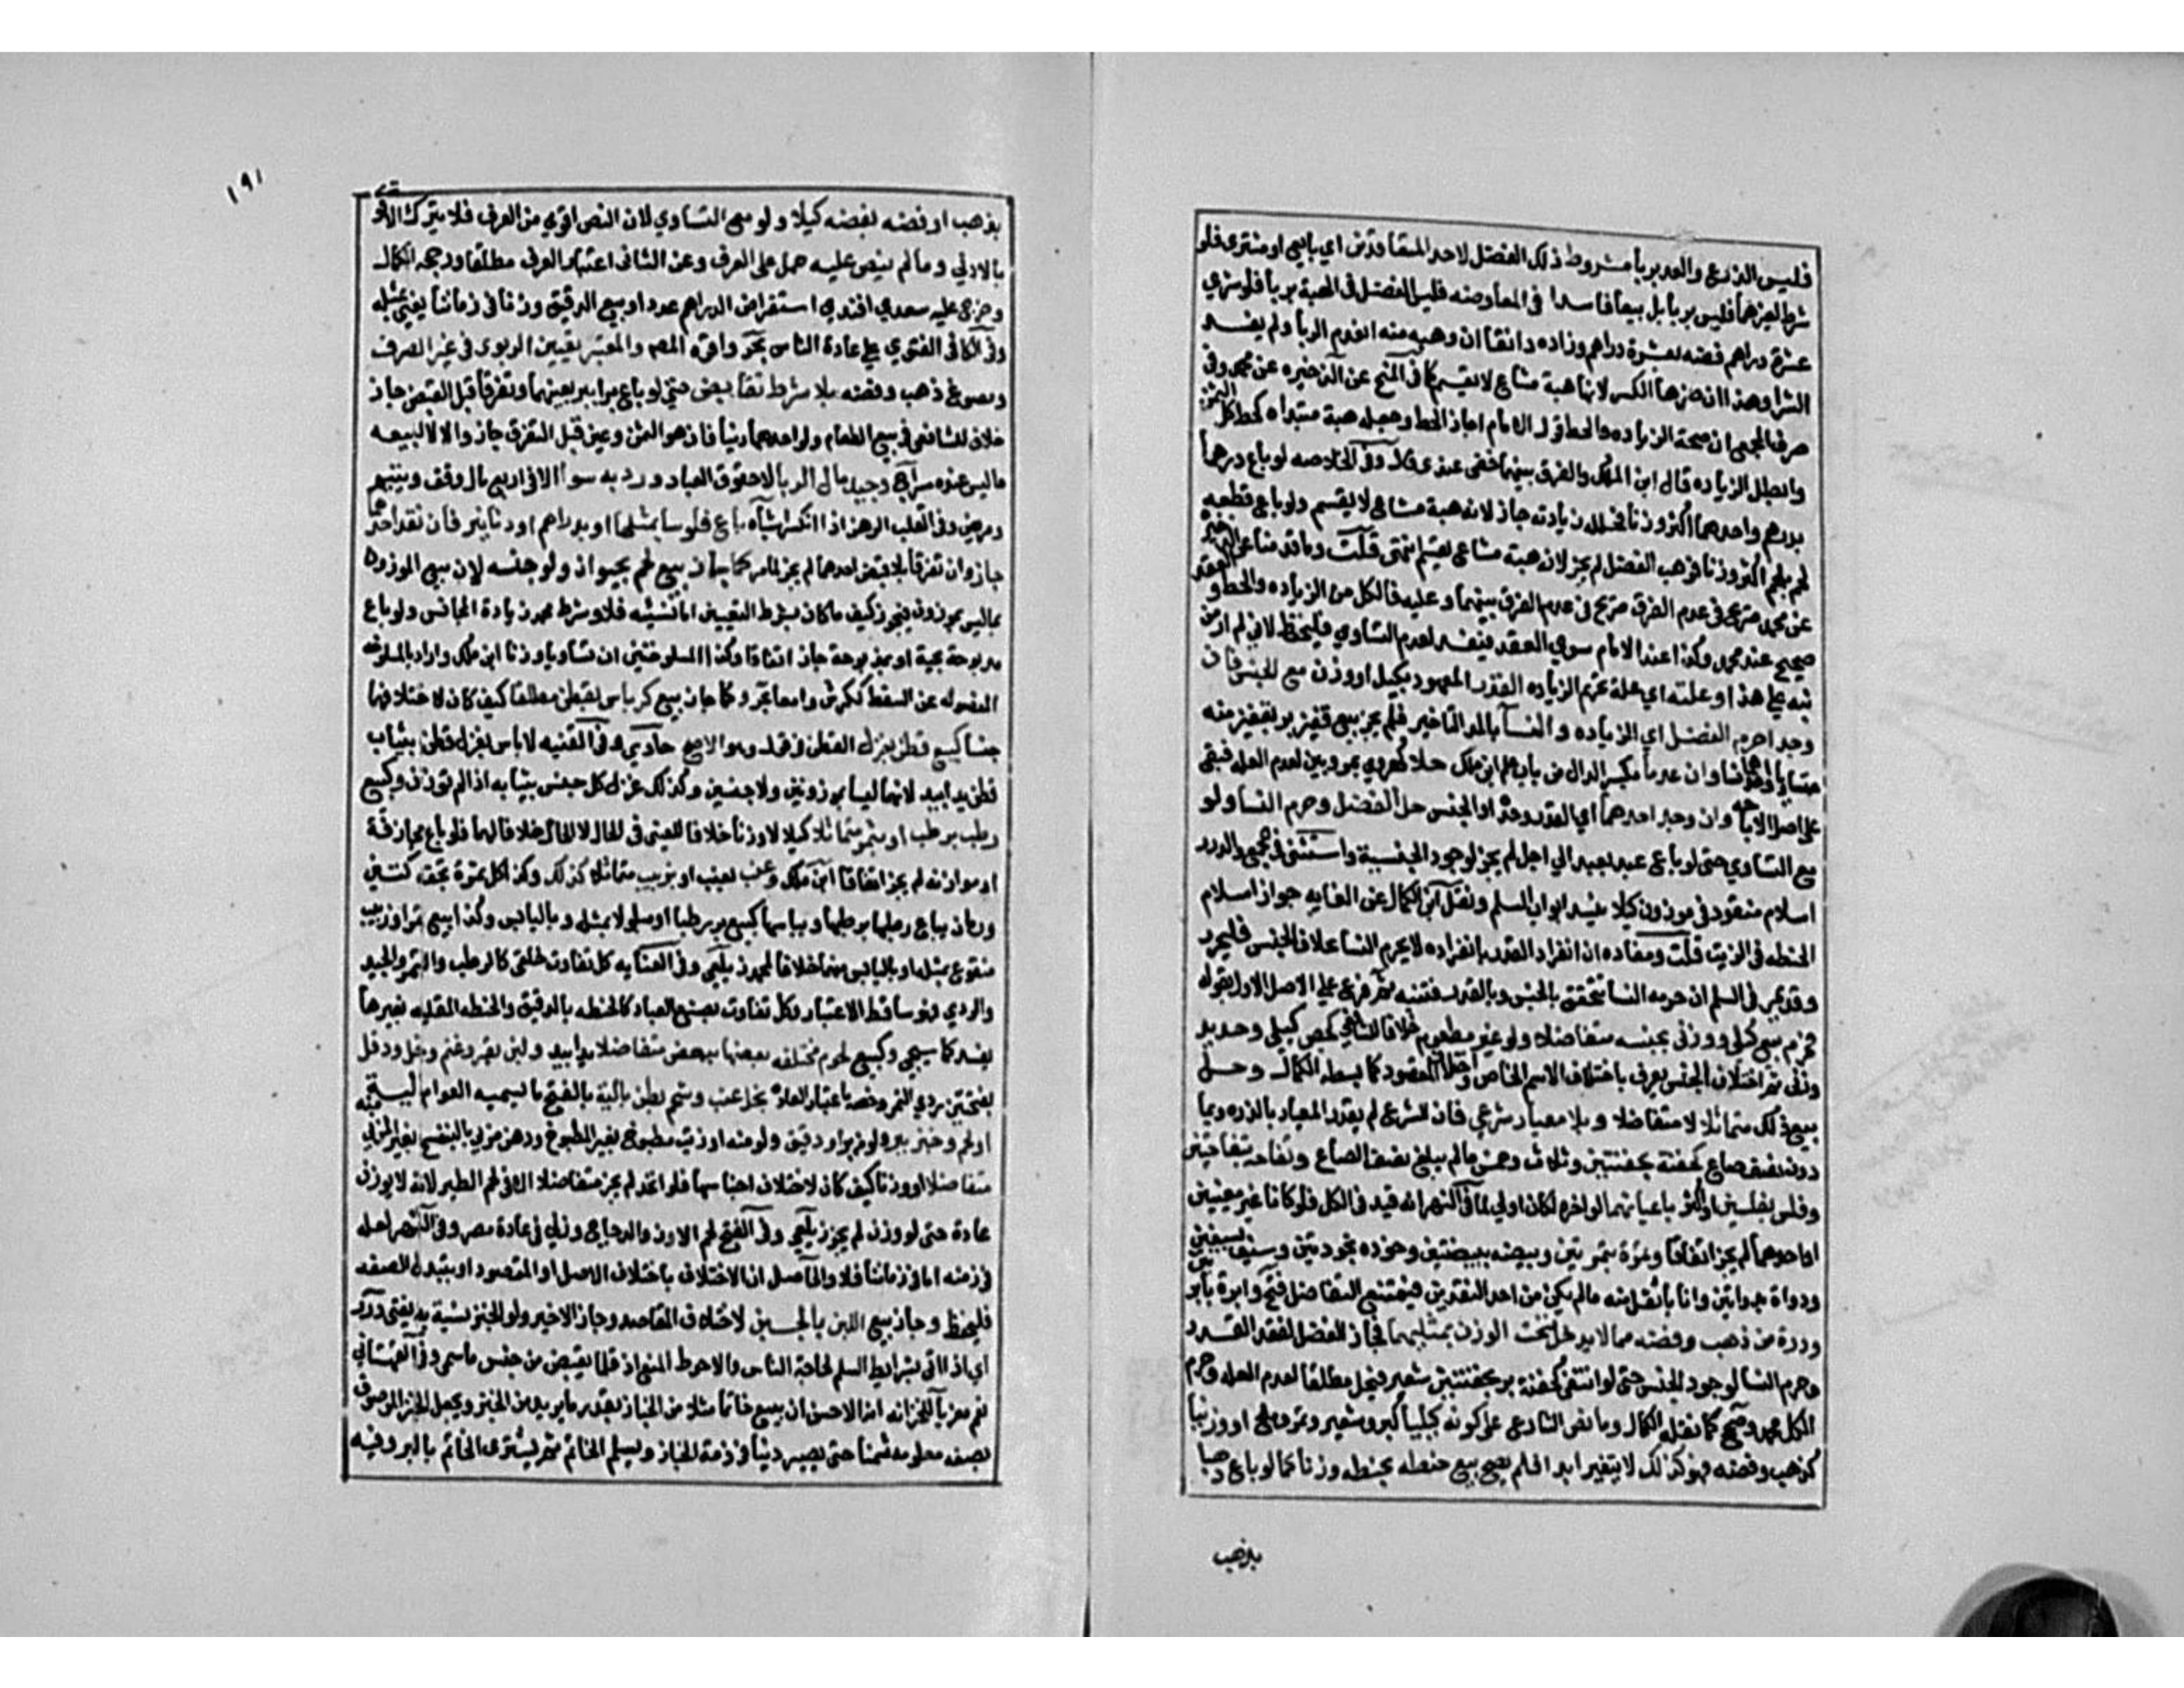 فليس الذرع والعد بربا مشروط ذلك الفضل لاحد المتعاقدين اي بايع او مشتري فلو
شرط لغيرهما فليس بربا بل بيعا فاسدا في المعاوضه فليس الفضل في الهبة بربا فلو شري
عشرة دراهم فضه بعشرة دراهم وزاده دانقا ان وهبه منه انعدم الربا ولم يفسد
الشرا وهذا ان ضرها الكسر لانها هبة مشاع لا يقسم كما في المنح عن الذخيره عن محمد وفي
صرف المجمع ان صحة الزياده والحط قول الامام اجاز الحط وجعله هبة مبتداه كحط كل الثمن
وابطل الزياده قال ابن الملك والفرق بينهما خفي عندي قال وفي الخلاصه لو باع درهما
بدرهم واحدهما اكثر وزنا فحلله زيادته جاز لانه هبة مشاع لا يقسم ولو باع قطعه
لحم بلحم اكثر وزنا فوهب الفضل لم يجز لان هبة مشاع يقسم انتهى قلت وما قدمنا عن الذخيره
عن محمد صريح في عدم الفرق بينهما وعليه فالكل من الزياده والحط والعقد
صحيح عند محمد وكذا عند الامام سوي العقد فيفسد لعدم التساوي فليحفظ لاني لم ار من
نبه على هذا وعلته اي علة تحريم الزياده القدر المعهود بكيل او وزن مع الجنس فان
وجدا حرم الفضل اي الزياده والنسآ بالمد التاخير فلم يجز بيع قفيز بر بقفيز منه
متساويا واحدهما نسا وان عدما بكسر الدال من باب علم ابن ملك حلا كهروي بمرويين لعدم العله فبقي
على اصل الاباحه وان وجد احدهما اي القدر وحده او الجنس حل الفضل وحرم النسا ولو
مع التساوي حتى لو باع عبدا بعبد الي اجل لم يجز لوجود الجنسية واستثنى في مجمع والدرر
اسلام منقود في موزون كيلا ينسد ابواب السلم ونقل ابن الكمال عن الغايه جواز اسلام
الحنطه في الزيت قلت ومفاده ان انفراد القدر بانفراده لا يحرم النسا بخلاف الجنس فليحرر
وقد يجي في السلم ان حرمه النسا تتحقق بالجنس وبالقدر فتنبه ثم فرع على الاصل الاول بقوله
فحرم بيع كيلي ووزني بجنسه متفاضلا ولو غير مطعوم خلافا للشافعي كجص كيلي وحديد
وزني ثم اختلاف الجنس يعرف باختلاف الاسم الخاص واختلاف المقصود كما بسطه الكمال وحل
بيع ذلك متماثلا لا متفاضلا وبلا معيار شرعي فان الشرع لم يقدر المعيار بالذره وبما
دون نصف صاع كحفنة بحفنتين وثلاث وخمس ما لم يبلغ نصف الصاع وتفاحه بتفاحتين
وفلس بفلسين او اكثر باعيانهما لو اخره لكان اولي لما في النهر انه قيد في الكل فلو كانا غير معينين
او احدهما لم يجز اتفاقا وتمرة بتمرتين وبيضه ببيضتين وجوزه بجوزتين وسيف بسيفين
ودواة بدواتين وانا باثقل منه ما لم يكن من احد النقدين فيمتنع التفاضل فتح وابرة بابرتين
وذرة من ذهب وفضه مما لا يدخل تحت الوزن بمثليهما فجاز للفضل لفقد القدر
وحرم النسا لوجود الجنس حتى لو انتفى كحفنة بر بحفنتين شعير فيحل مطلقا لعدم العله وحرم
الكل محمد وصح كما نقله الكمال وما نص الشارع على كونه كيليا كبر وشعير وتمر وملح او وزنيا
كذهب وفضه فهو كذلك لا يتغير ابدا فلم يصح بيع حنطه بحنطه وزنا كما لو باع ذهبا
بذهب
١٩١
بذهب او فضه بفضه كيلا ولو مع التساوي لان النص اقوي من العرف فلا يترك الاقوي
بالادني وما لم ينص عليه حمل على العرف وعن الثاني اعتبار العرف مطلقا ورجحه الكمال
وخرج عليه سعدي افندي استقراض الدراهم عددا وبيع الدقيق وزنا في زماننا يعني بمثله
وفي الكافي الفتوي على عادة الناس بحر واقره المصم والمعتبر تعيين الربوي في غير الصرف
ومصوغ ذهب وفضه بلا شرط تقابض حتي لو باع برا ببر بعينهما وتفرقا قبل القبض جاز
خلافا للشافعي في بيع الطعام ولو احدهما دينا فان هو الثمن وعين قبل التفرق جاز والا لا كبيعه
ما ليس عنده سراج وجيد مال الربا لا حقوق العباد ورديه سوا الا في اربع مال وقف ويتيم
ومريض وفي القلب الرهن اذا انكسر اشباه باع فلوسا بمثلها او بدراهم او دنانير فان نقد احدهما
جاز وان تفرقا بلا قبض احدهما لم يجز لما مر كما جاز بيع لحم بحيوان ولو جنسه لان بيع الموزون
بما ليس بموزون فيجوز كيف ما كان بشرط التعيين اما نسيئه فلا وشرط محمد زيادة المجانس ولو باع
مذبوحة بحية او بمذبوحة جاز اتفاقا وكذا المسلوختين ان تساويا وزنا ابن ملك واراد بالمسلوخه
المفصوله عن السقط ككرش وامعا بحر وكما جاز بيع كرباس بقطن مطلقا كيف كان لاختلافهما
جنسا كبيع قطن بغزل القطن في قول وهو الاصح حاوي وفي القنيه لا باس بغزل قطن بثياب
قطن يدا بيد لانهما ليسا بموزونين ولا جنسين وكذلك غزل كل جنس بثيابه اذا لم توزن وكبيع
رطب برطب او بتمر متماثلا كيلا لا وزنا خلافا للعيني في الحال لا المآل خلافا لهما فلو باع مجازفة
او موازنه لم يجز اتفاقا ابن ملك وعنب بعنب او بزبيب متماثلا كذلك وكذا كل ثمرة تجف كتين
ورمان يباع رطبها برطبها وبيابسها كبيع بر رطبا او مبلولا بمثله وباليابس وكذا بيع تمر او زبيب
منقوع بمثله او باليابس منهما خلافا لمحمد زيلعي وفي العنايه كل تفاوت خلقي كالرطب والتمر والجيد
والردي فهو ساقط الاعتبار وكل تفاوت بصنع العباد كالحنطه بالدقيق والحنطه المقليه بغيرها
يفسد كما سيجي وكبيع لحوم مختلفه بعضها ببعض متفاضلا يدا بيد ولبن بقر وغنم وخل دقل
بفتحتين ردي التمر وخصه باعتبار العادة بخل عنب وشحم بطن بالية بالفتح ما يسميه العوام لية
او لحم وخبز ببر ولو منه او دقيق ولو منه او زيت مطبوخ بغير المطبوخ ودهن مربي بالبنفسج بغير المربي
متفاضلا او وزنا كيف كان لاختلاف اجناسها فلو اتحد لم يجز متفاضلا الا في لحم الطير لانه لا يوزن
عادة حتى لو وزن لم يجز زيلعي وفي الفتح لحم الاوز والدجاج وزني في عادة مصر وفي النهر لعله
في زمنه اما في زماننا فلا والحاصل ان الاختلاف باختلاف الاصل او المقصود او بتبدل الصفه
فليحفظ وجاز بيع اللبن بالجبن لاختلاف المقاصد وجاز الاخير ولو الخبز نسية به يفتي درر
اي اذا اتى بشرايط السلم لحاجة الناس والاحوط المنع اذ قلما يقبض من جنس ما سمي وفي القهستاني
نعم معزيا للخزانه الاحسن ان يبيع خاتما مثلا من الخباز بقدر ما يريد من الخبز ويجعل الخبز الموصوف
بصفه معلومه ثمنا حتى يصير دينا في ذمة الخباز ويسلم الخاتم ثم يشتري الخاتم بالبر وفيه